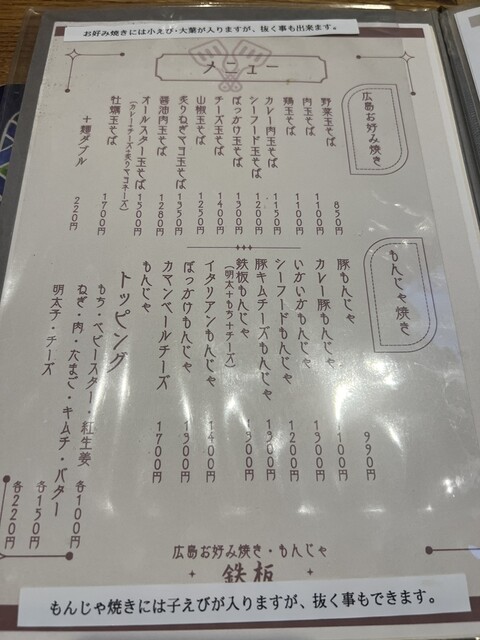 お好み焼きには小えび・大葉が入りますが、抜く事も出来ます。
メニュー
広島お好み焼き
野菜玉そば 850円
肉玉そば 1100円
鶏玉そば 1100円
カレー肉玉そば 1150円
シーフード玉そば 1200円
ぼっかけ玉そば 1300円
チーズ玉そば 1400円
山椒玉そば 1250円
炙りねぎマヨ玉そば 1350円
醤油肉玉そば 1280円
オールスター玉そば 1500円
(カレー+チーズ+炙りマヨネーズ)
牡蠣玉そば 1700円
+麺ダブル 220円
もんじゃ焼き
豚もんじゃ 990円
カレー豚もんじゃ 1100円
いかいかもんじゃ 1300円
シーフードもんじゃ 1200円
豚キムチーズもんじゃ 1300円
鉄板もんじゃ 1500円
(明太+もち+チーズ)
イタリアンもんじゃ 1400円
ぼっかけもんじゃ 1300円
カマンベールチーズ
もんじゃ 1700円
トッピング
もち・ベビースター・紅生姜 各100円
ねぎ・肉・たまご・キムチ・バター 各150円
明太子・チーズ 各220円
広島お好み焼き・もんじゃ
鉄板
もんじゃ焼きには子えびが入りますが、抜く事もできます。